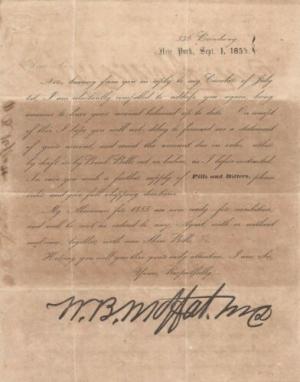 335 Broadway
New York, Sept. 1, 1855.
Not hearing from you in reply to my Circular of July
1st, I am reluctantly compelled to address you again, being
anxious to have your account balanced up to date. On receipt
of this I hope you will not delay to forward me a statement
of your account, and remit the amount due in cash, either
by draft or by Bank Bills not as below, as I before instructed.
In case you need a further supply of Pills and Bitters, please
order and give full shipping directions.
My Almanacs for 1855 are now ready for
and will be sent as to any Agent with or without
together with new Show Bills, &c.
Hoping you will give this your early attention, I am Sir,
Yours, Respectfully,
W. B. Moffat. M.D